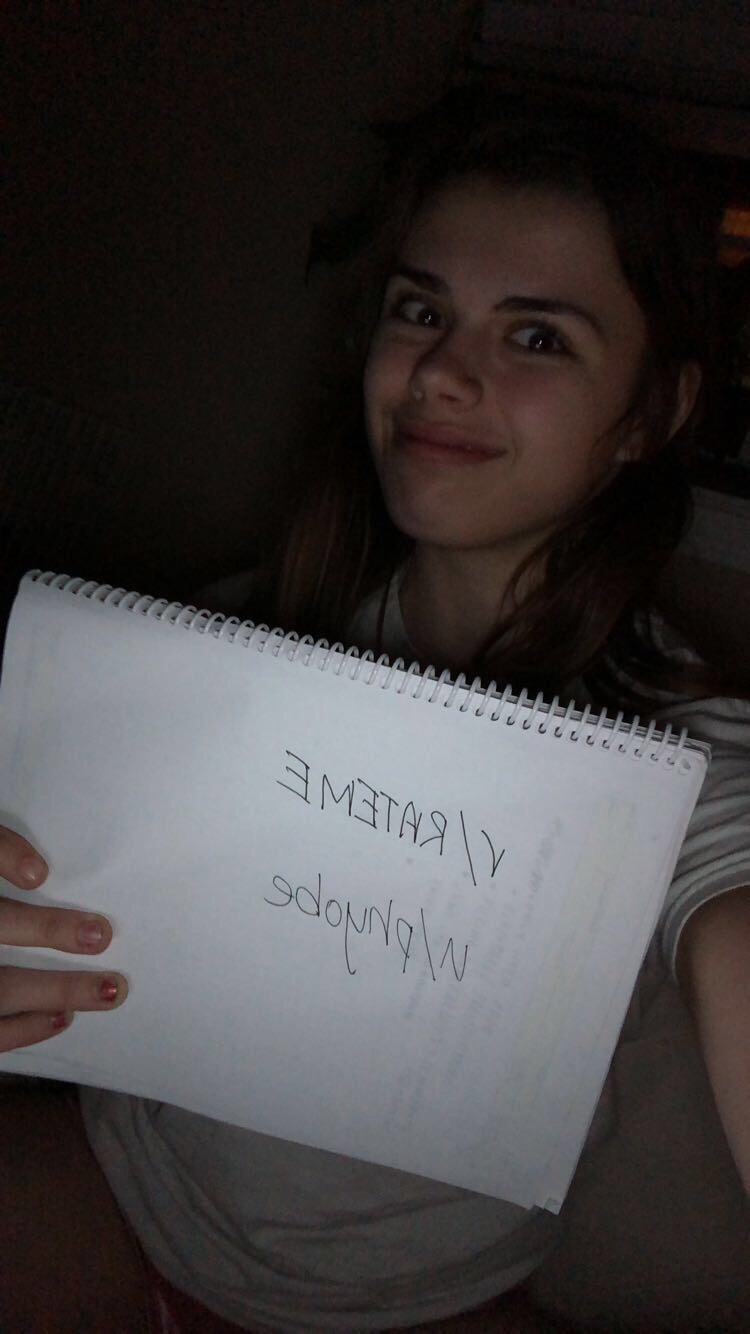 r/RATEME
u/phyobe